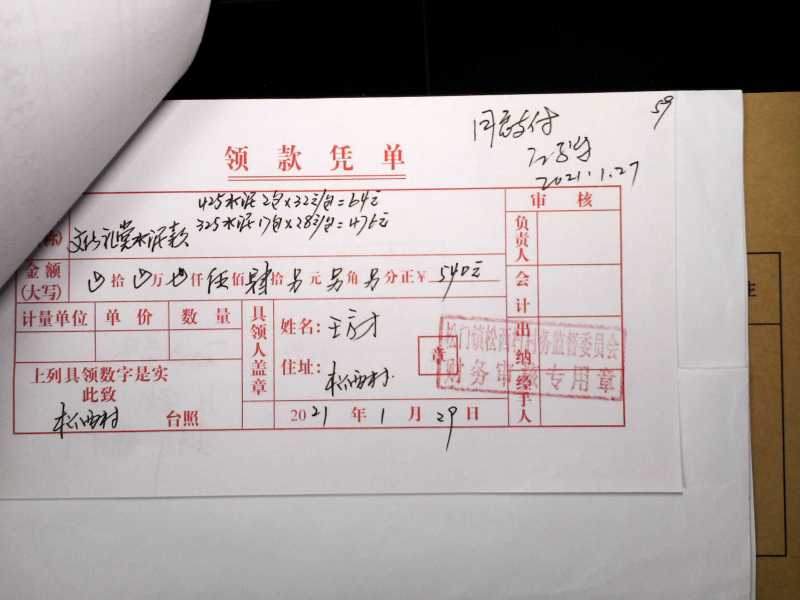 59
同意支付
2021.1.27
领款凭单
425水泥2包×32元/包=64元
325水泥17包×28元/包=476元
文化礼堂水泥款
审核
负责人
金额(大写) 拾 万 仟 伍佰肆拾 另元 另角 另分正¥ 540元
会计
计量单位 单价 数量
具领人盖章
姓名:
出纳
松门镇松西村村务监督委员会
财务审核专用章
章
住址:松西村
经手人
上列具领数字是实
此致
松西村 台照
2021年1月29日